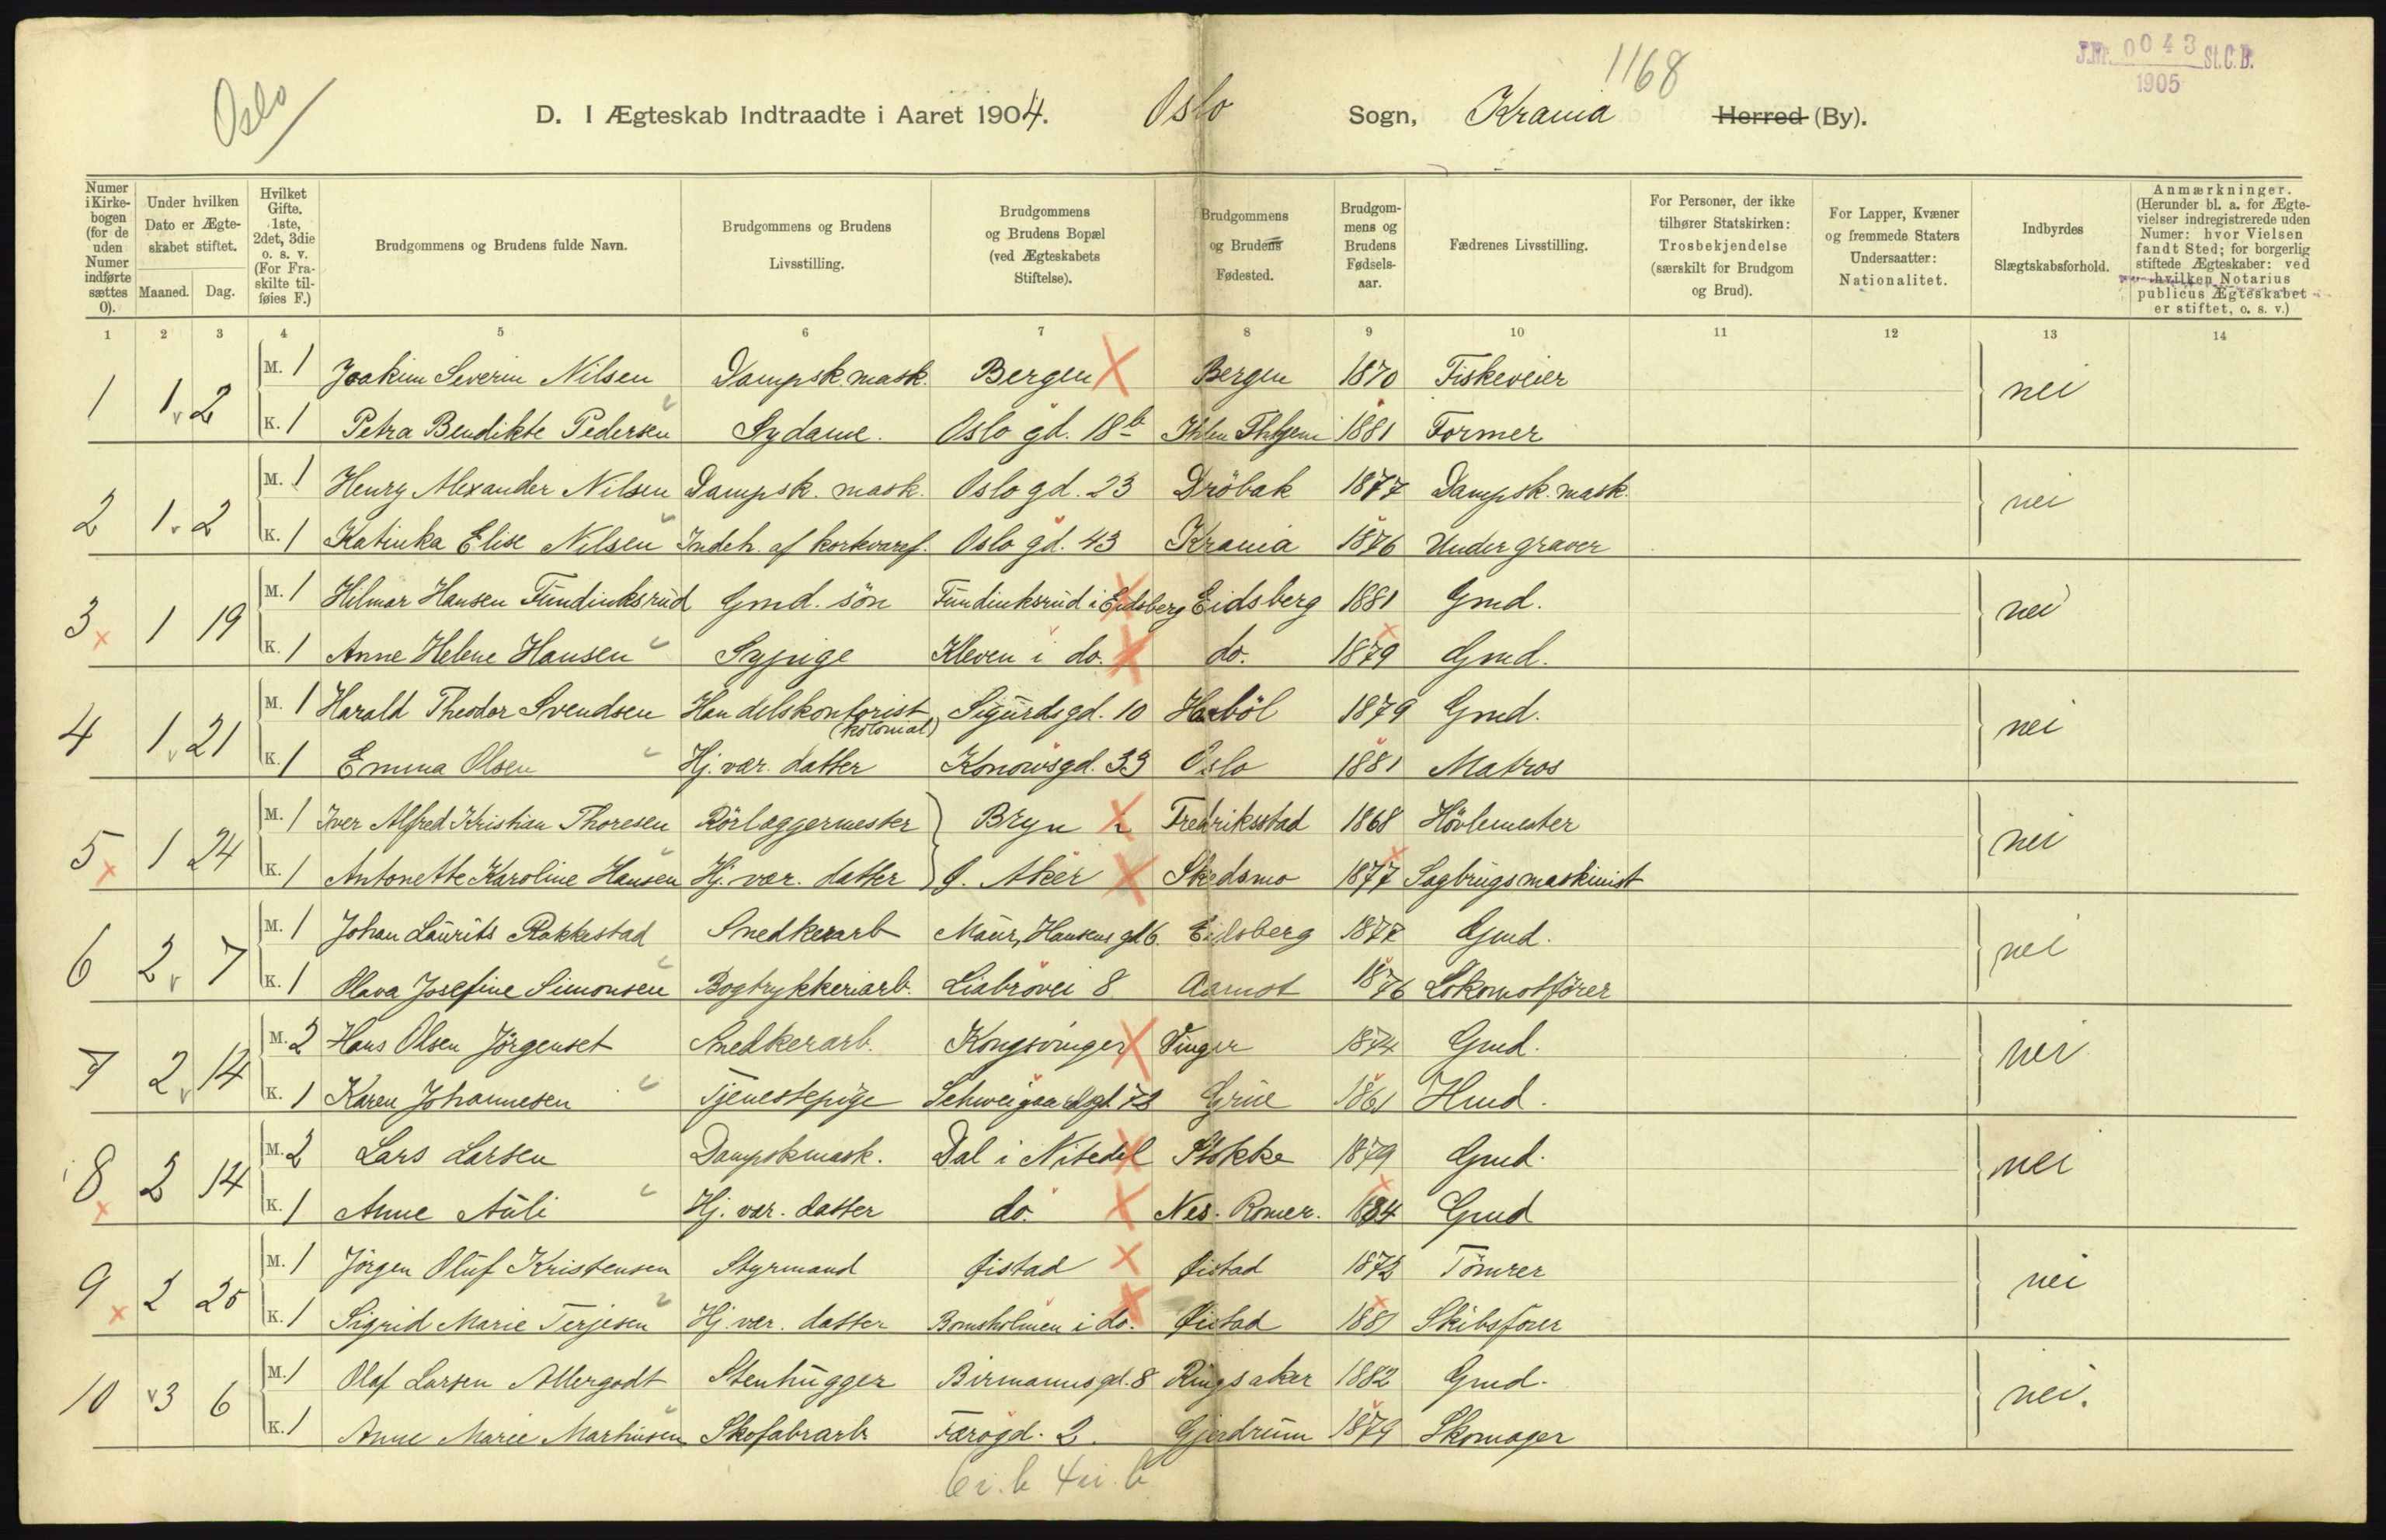 Oslo
1168
J.Nr. 0043 St.C.B.
1905
D. I Ægteskab Indtraadte i Aaret 1904. Oslo Sogn, Krania Herred (By).
Numer i Kirkebogen (for de uden Numer indførte sættes 0).
Under hvilken Dato er Ægteskabet stiftet.
Maaned. Dag.
Hvilket Gifte. 1ste, 2det, 3die o. s. v. (For Fraskilte tilføies F.)
Brudgommens og Brudens fulde Navn.
Brudgommens og Brudens Livsstilling.
Brudgommens og Brudens Bopæl (ved Ægteskabets Stiftelse).
Brudgommens og Brudens Fødested.
Brudgommens og Brudens Fødselsaar.
Fædrenes Livsstilling.
For Personer, der ikke tilhører Statskirken: Trosbekjendelse (særskilt for Brudgom og Brud).
For Lapper, Kvæner og fremmede Staters Undersaatter: Nationalitet.
Indbyrdes Slægtskabsforhold.
Anmærkninger. (Herunder bl. a. for Ægtevielser indregistrerede uden Numer: hvor Vielsen fandt Sted; for borgerlig stiftede Ægteskaber: ved hvilken Notarius publicus Ægteskabet er stiftet, o. s. v.)
1 2 3 4 5 6 7 8 9 10 11 12 13 14
1 1 2 M. 1 Joakim Severin Nilsen Dampsk. mask. Bergen Bergen 1870 Fiskeveier nei
K. 1 Petra Bendikte Pedersen Sydame. Oslo gd. 18b Ihlen Thhjem 1881 Former
2 1 2 M. 1 Henry Alexander Nilsen Dampsk. mask. Oslo gd. 23 Dröbak 1877 Dampsk. mask. nei
K. 1 Katinka Elise Nilsen Indeh. af kortvaref. Oslo gd. 43 Krania 1876 Undergraver
3 1 19 M. 1 Hilmar Hansen Fundinksrud Gmd. sön Fundinksrud i Eidsberg Eidsberg 1881 Gmd. nei
K. 1 Anne Helene Hansen Sypige Kleven i do. do. 1879 Gmd.
4 1 21 M. 1 Harald Theodor Svendsen Handelskontorist (kolonial) Sigurdsgd. 10 Haaböl 1879 Gmd. nei
K. 1 Emma Olsen Hj. vær. datter Konowsgd. 33 Oslo 1881 Matros
5 1 24 M. 1 Iver Alfred Kristian Thoresen Rörlæggermester Bryn Fredriksstad 1868 Hövlemester nei
K. 1 Antonette Karoline Hansen Hj. vær. datter Ø. Aker Skedsmo 1877 Sagbrugsmaskinist
6 2 7 M. 1 Johan Laurits Rakkestad Snedkerarb Maur, Hansens gd 6 Eidsberg 1877 Gmd. nei
K. 1 Olava Josefine Simonsen Bogtrykkeriarb. Liabrovei 8 Aamot 1876 Lokomotfører
7 2 14 M. 2 Hans Olsen Jörgenset Snedkerarb. Kongsvinger Vinger 1874 Gmd. nei
K. 1 Karen Johannesen Tjenestepige Schweigaardsgd 73 Grue 1861 Hmd.
8 2 14 M. 2 Lars Larsen Dampskmask. Dal i Nitedal Stokke 1879 Gmd. nei
K. 1 Anne Auli Hj. vær. datter do. Nes. Romer. 1884 Gmd
9 2 25 M. 1 Jörgen Oluf Kristensen Styrmand Øistad Øistad 1872 Tömrer nei
K. 1 Sigrid Marie Terjesen Hj. vær. datter Bomsholmen i do. Øistad 1881 Skibsfører
10 3 6 M. 1 Olaf Larsen Allergodt Stenhugger Birmannsgd. 8 Ringsaker 1882 Gmd. nei.
K. 1 Anne Marie Marthinsen Skofabrarb Færøgd. 2. Gjerdrum 1879 Skomager
6 i. b 4 u. b